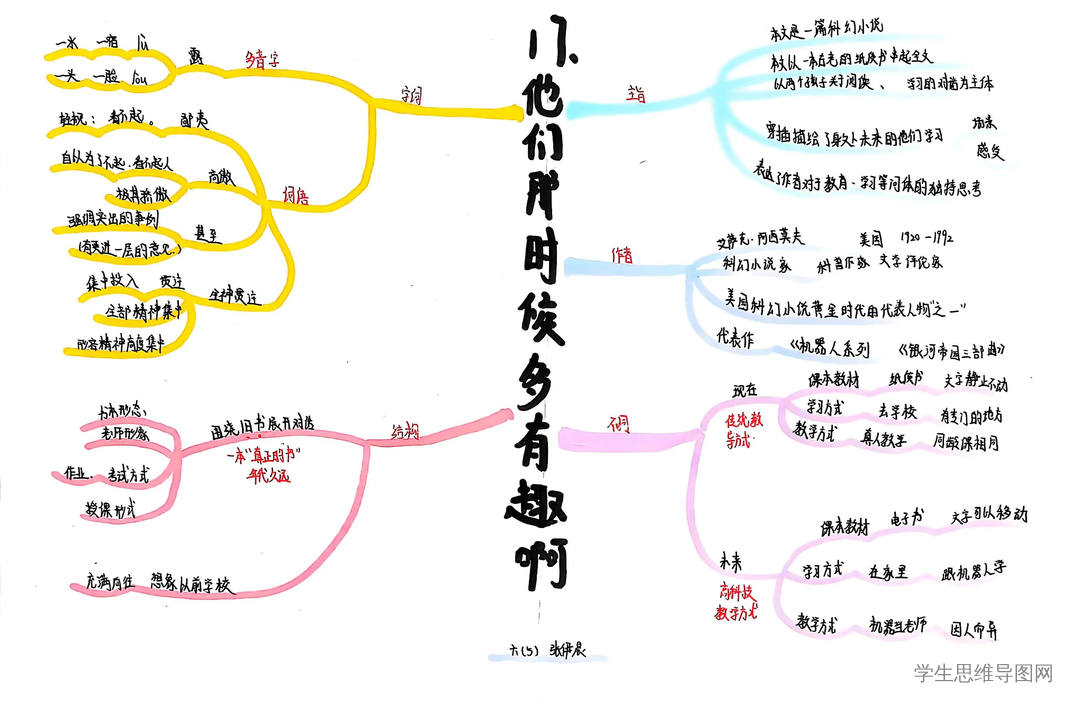 17、他们那时候多有趣啊
字词
多音字
露
一水 一宿 lù
一头 一脸 lòu
词语
轻视:看不起。
自以为了不起,看不起人
高傲
极其骄傲
强调突出的事例
甚至
(有更进一层的意思)
全神贯注
集中投入 贯注
全部精神集中
形容精神高度集中
主旨
本文是一篇科幻小说
本文以一本古老的纸质书串起全文
以两个孩子关于阅读、学习的对话为主体
穿插描绘了身处未来的他们学习
感受
表达了作者对于教育、学习等问题的独特思考
作者
艾萨克·阿西莫夫 美国 1920-1992
科幻小说家 科普作家 文学评论家
美国科幻小说黄金时代的代表人物之一"
代表作 《机器人系列 《银河帝国三部曲》
结构
围绕旧书展开对话
一本"真正的书"
年代久远
书本形态
老师形象
作业、考试方式
授课形式
充满向往 想象以前学校
不同
现在
传统教
学方式
课本教材 纸质书 文字静止不动
学习方式 去学校 有专门的地方
教学方式 真人教室 同龄课相同
未来
高科技
教学方式
课本教材 电子书 文字可以移动
学习方式 在家里 跟机器人学
教学方式 机器当老师 因人而异
六(5)
学生思维导图网